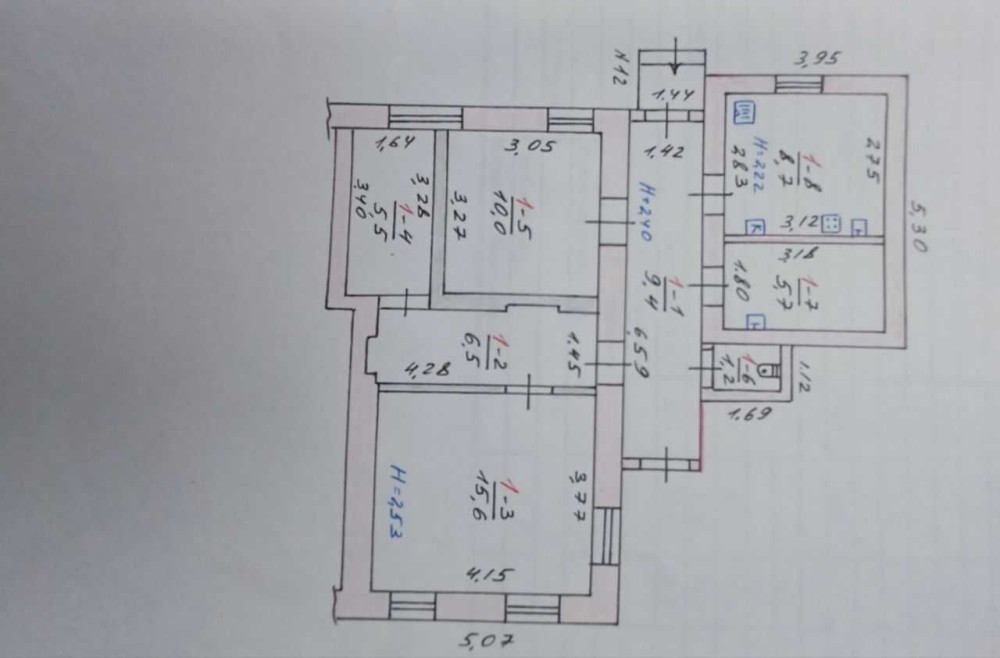 3,95
N12
1.44
1,64
3,05
1,42
H=222
2.83
1-8
8,7
2.75
5,30
3,40
1-4
5,5
3,28
3,27
1-5
10,0
H=2,40
3,12
K
3,18
1-7
5,7
1.80
1-1
9,4
6,59
1-2
6,5
1.45
4,28
1-6
1,2
1.12
1.69
H=2,53
1-3
15,6
3,77
4,15
5,07